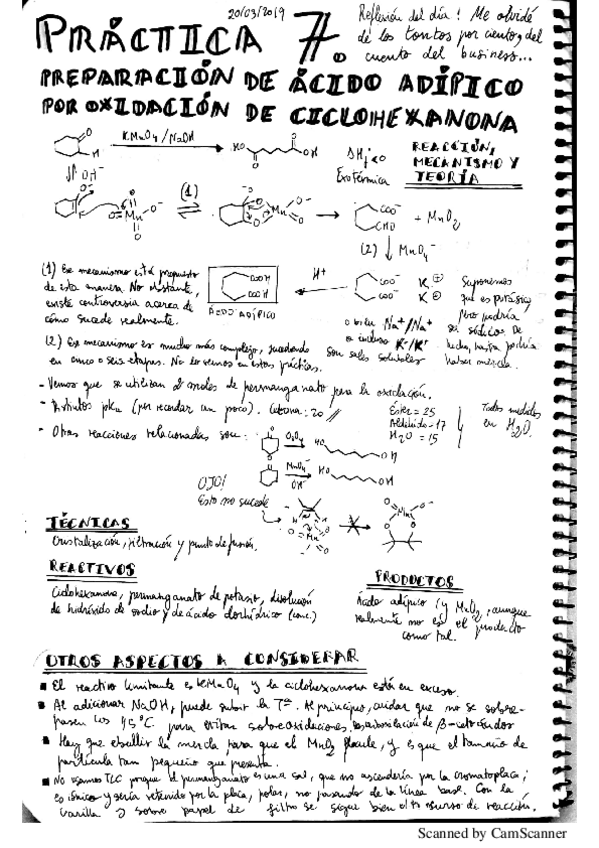 20/03/2019
Reflexión del día: Me olvidé
de los tontos por ciento, del
cuento del business...
PRÁCTICA 7.
PREPARACIÓN DE ÁCIDO ADÍPICO
POR OXIDACIÓN DE CICLOHEXANONA
KMnO4/NaOH
ΔH <0
Exotérmica
REACCIÓN,
MECANISMO Y
TEORÍA
OH⁻
(1)
COO⁻
CHO
+ MnO2
(2) MnO4⁻
(1) Ese mecanismo está propuesto
de esta manera. No obstante,
existe controversia acerca de
cómo sucede realmente.
COOH
COOH
ÁCIDO ADÍPICO
H⁺
COO⁻ K⊕
COO⁻ K⊕
Suponemos
que es potásica,
pero podría
ser sódica. De
hecho, hasta podría
haber mezcla.
o bien Na⁺/Na⁺
o incluso K⁺/K⁺
son sales solubles
(2) Ese mecanismo es mucho más complejo, sucediendo
en cinco o seis etapas. No lo vemos en estas prácticas.
- Vemos que se utilizan 2 moles de permanganato para la oxidación.
- Distintos pka (por recordar un poco). Cetona: 20 //
Éster = 25
Aldehído = 17
H2O = 15
Todos medidos
en H2O.
- Otras reacciones relacionadas son:
OsO4
MnO4⁻
OH⁻
OJO!
Esto no sucede
TÉCNICAS
Cristalización, filtración y punto de fusión.
REACTIVOS
Ciclohexanona, permanganato de potasio, disolución
de hidróxido de sodio y de ácido clorhídrico (conc.)
PRODUCTOS
Ácido adípico (y MnO2, aunque
realmente no es el producto
como tal.
OTROS ASPECTOS A CONSIDERAR
■ El reactivo limitante es KMnO4 y la ciclohexanona está en exceso.
■ Al adicionar NaOH, puede subir la Tª. Al principio, cuidar que no se sobre-
pasen los 45°C para evitar sobreoxidaciones, descarboxilación de β-cetoácidos
■ Hay que ebullir la mezcla para que el MnO2 flocule, y es que el tamaño de
partícula tan pequeño que presenta.
■ No usamos TLC porque el permanganato es una sal, que no ascendería por la cromatoplaca;
es iónico y sería retenido por la placa, polar, no pasando de la línea base. Con la
varilla y sobre papel de filtro se sigue bien el transcurso de reacción.
Scanned by CamScanner